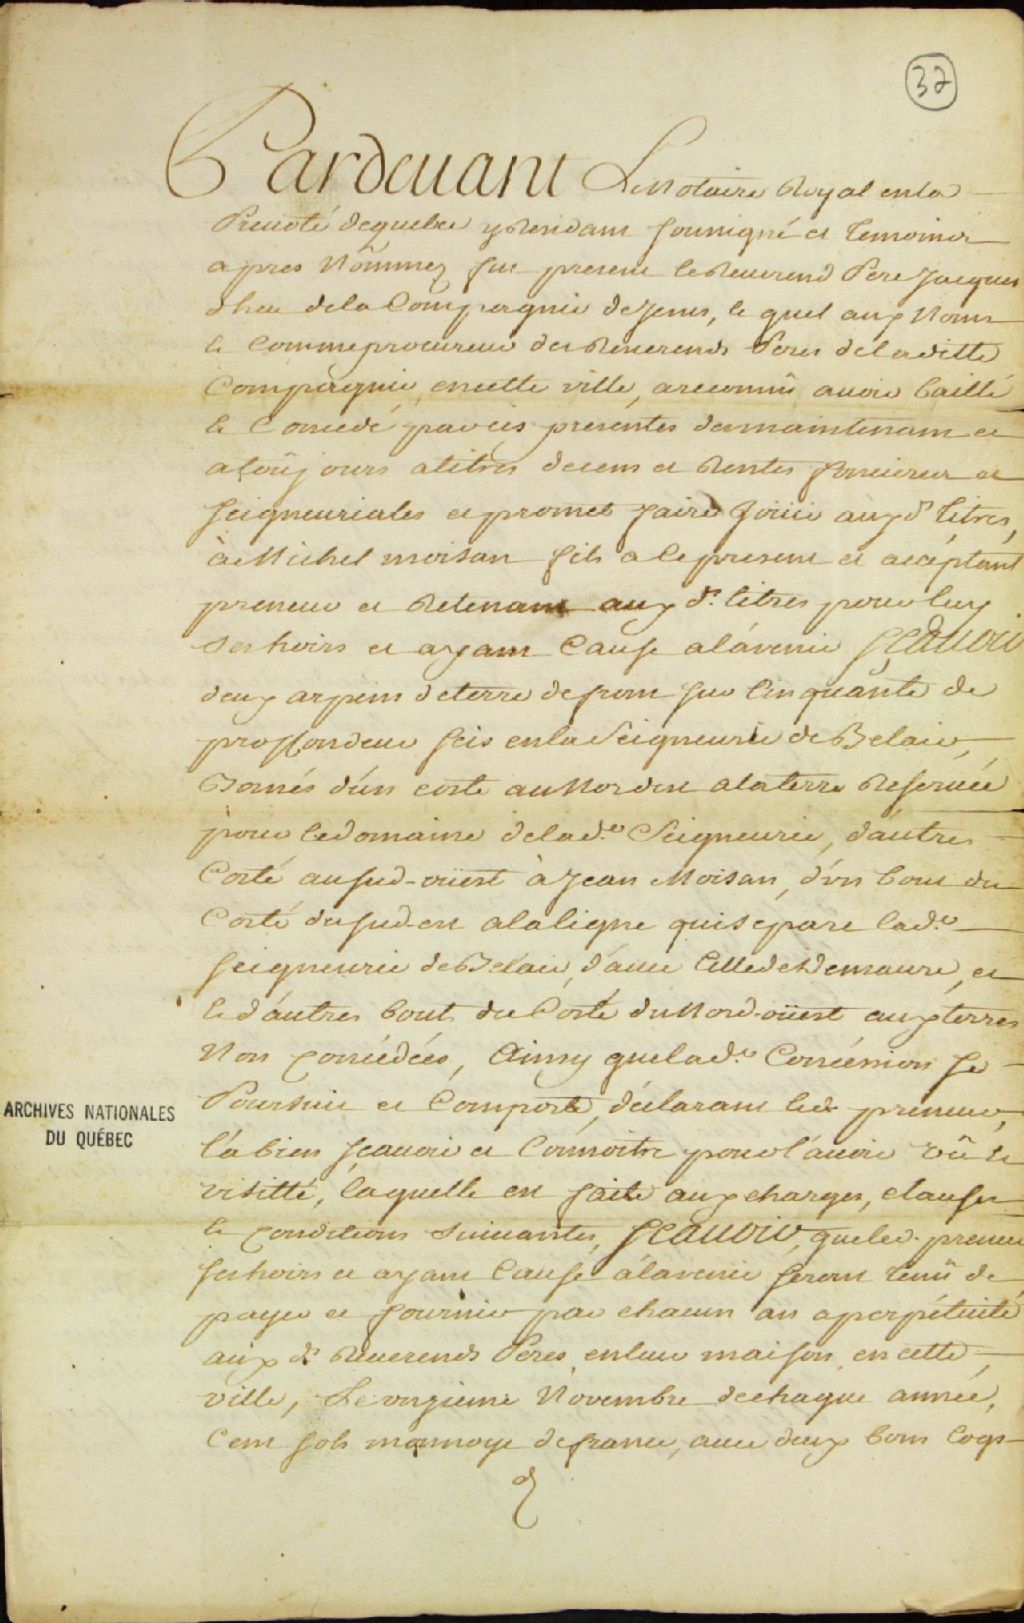 37
Pardeuant Le Notaire Royal en la
Preuoté de quebec y Residant soussigné et temoins
apres Nommez fut present le Reuerend Pere Jacques
dheu de la Compagnie de Jesus, le quel aux Noms
et Comme procureur des Reuerends Peres de laditte
Compagnie, en cette ville, a reconnû auoir baillé
et Concedé par ces presentes des maintenant et
a toûjours a titres de cens et Rentes foncieres et
seigneuriales et promet faire Joüir auxds titres,
à Michel moisan fils a ce present et acéptant
preneur et Retenant aux ds. titres pour luy
ses hoirs et ayant Cause a lávenir Scauoir
deux arpens de terre de front sur Cinquante de
proffondeur scis en la Seigneurie de Belair,
Bornés d'ún costé au Nord est a la terre Reseruée
pour le domaine de lade Seigneurie, d'autres
Costé au sud-oüest à Jean Moisan, d'vn bout du
Costé du sud-est a la ligne qui separe lade
seigneurie de Belair, d'auec Celle de demaure, et
et d'autres bout du Costé du Nord-oüest aux terres
Non concédées, Ainsy que lade Concession se
Poursuit et Comporte, déclarant led preneur,
l'a bien scauoir et Connoitre pour l'auoir vû et
visitté, laquelle est faite aux charges, clauses
et conditions suiuantes, Scauoir, que led. preneur
ses hoirs et ayant Cause a l'avenir seront tenû de
payer et fournir par chacun an a perpétuité
aux ds Reuerends Peres en leur maison en cette
ville, Le onzieme Novembre de chaque année,
Cent sols monnoye de france, auec deux bons Coqs
ARCHIVES NATIONALES
DU QUÉBEC